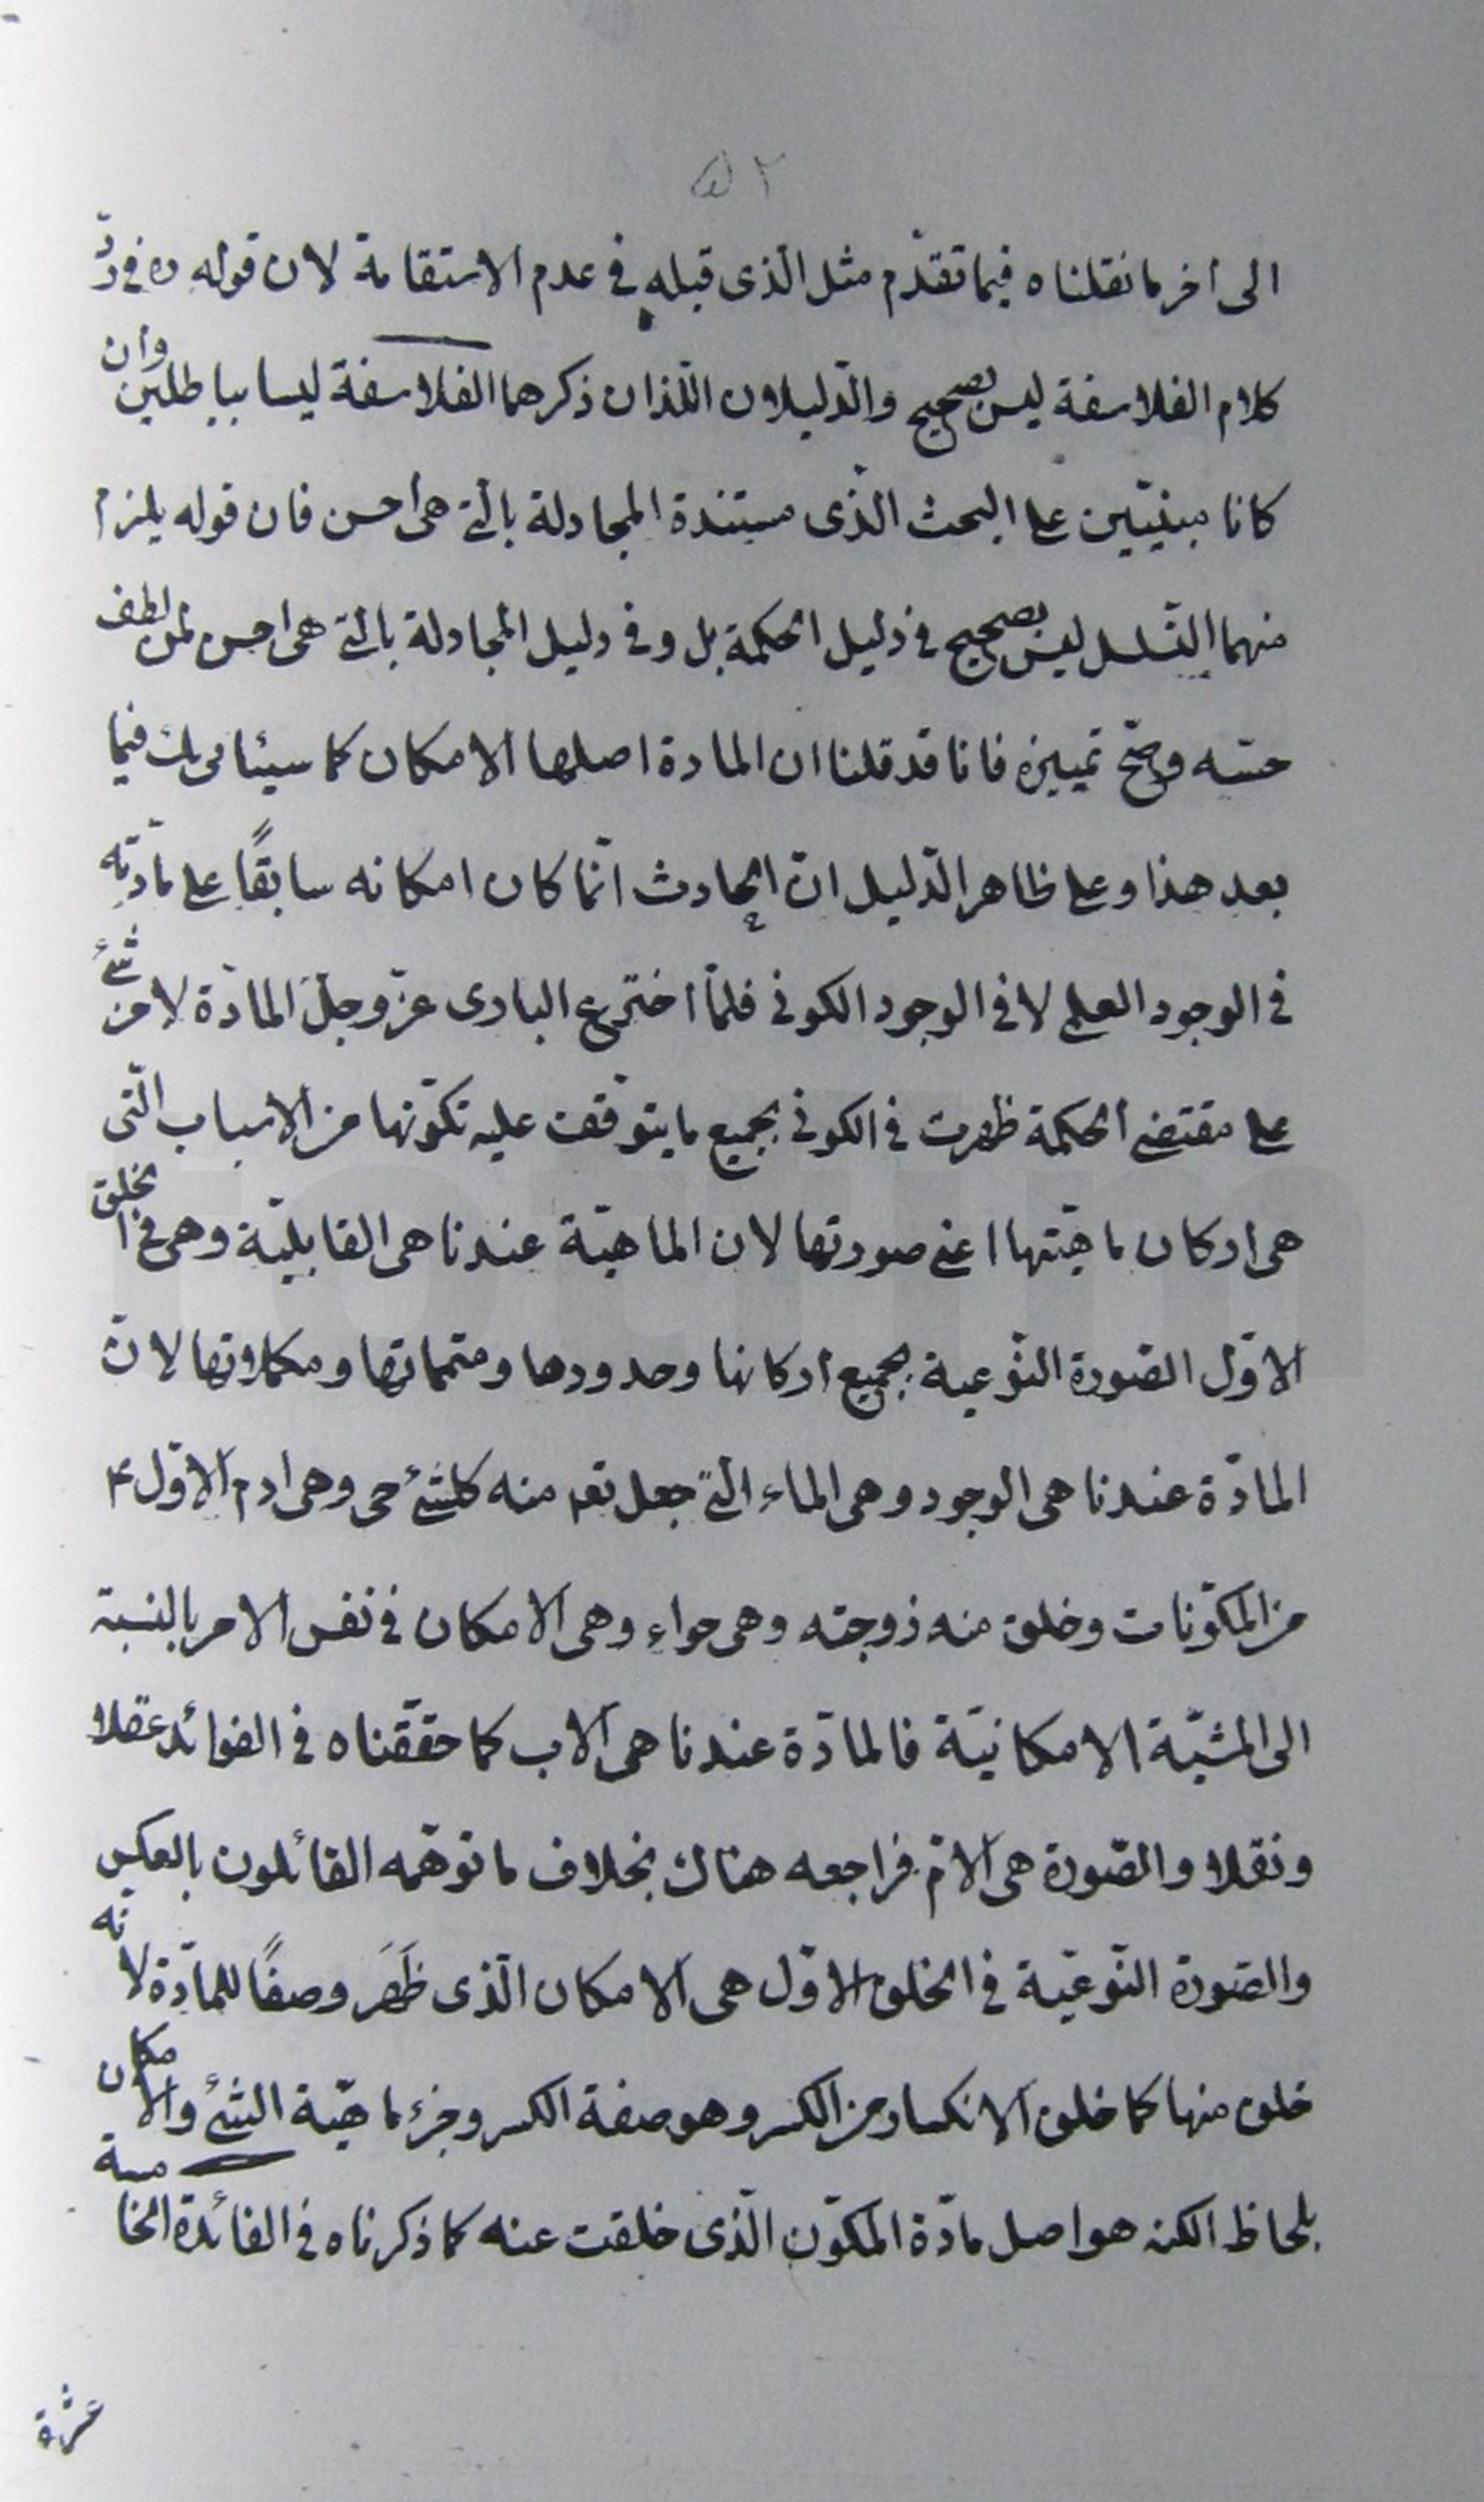 ٥٢
الى اخر ما نقلناه فيما تقدّم مثل الّذى قبله فى عدم الاستقامة لان قوله ره فى ردّ
كلام الفلاسفة ليس بصحيح والدّليلان اللّذان ذكرهما الفلاسفة ليسا بباطلين وان
كانا مبنيّين على البحث الّذى مستندة المجادلة بالّتى هى أحسن فان قوله يلزم
منهما التّسلسل ليس بصحيح فى دليل الحكمة بل وفى دليل المجادلة بالّتى هى احسن لمن لطف
حسّه وصحّ تمييزه فانا قد قلنا ان المادة اصلها الامكان كما سيئاتى لك فيما
بعد هذا وعلى ظاهر الدّليل انّ الحادث انّما كان امكانه سابقًا على مادّته
فى الوجود العلمى لا فى الوجود الكونى فلمّا اخترع البارى عزّ وجلّ المادّة لا من شئ
على مقتضى الحكمة ظهرت فى الكونى بجميع ما يتوقّف عليه تكوّنها من الاسباب الّتى
هى اركان ماهيّتها اعنى صورتها لان الماهيّة عندنا هى القابليّة وهى فى الخلق
الاوّل الصّورة النّوعية بجميع اركانها وحدودها ومتمماتها ومكملاتها لانّ
المادّة عندنا هى الوجود وهى الماء الّتى جعل تعم منه كلشئ حى وهى ادم الاوّل ع
من المكوّنات وخلق منه زوجته وهى حواء وهى الامكان فى نفس الامر بالنسبة
الى المشيّة الامكانيّة فالمادّة عندنا هى الاب كما حققّناه فى الفوائد عقلا
ونقلا والصّورة هى الامّ فراجعه هناك بخلاف ما توهّمه القائلون بالعكس
والصّورة النّوعيّة فى الخلق الاوّل هى الامكان الّذى ظَهَرَ وصفًا للمادّة لانه
خلق منها كما خلق الانكسار من الكسر وهو صفة الكسر وجزء ماهيّة الشئ والامكان
بلحاظ الكنه هو اصل مادّة المكوّن الّذى خلقت عنه كما ذكرناه فى الفائدة الخامسة
عشرة